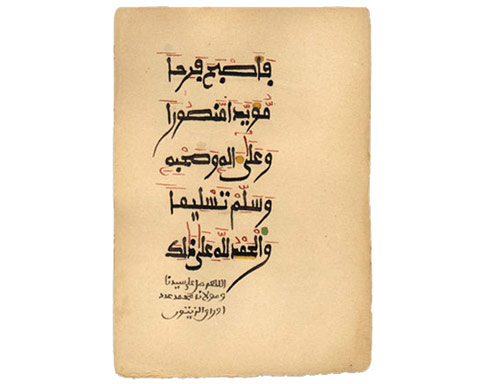 فَأَصْبَحَ فَرِحًا
مُّؤَيَّدًا مَّنْصُورًا
وَعَلَى ءَالِهِ وَصَحْبِهِ
وَسَلِّمْ تَسْلِيمًا
وَالْحَمْدُ لِلَّهِ عَلَى ذَلِكَ
اللهم صل على سيدنا
و مولانا محمد عدد
اوراق الزيتون